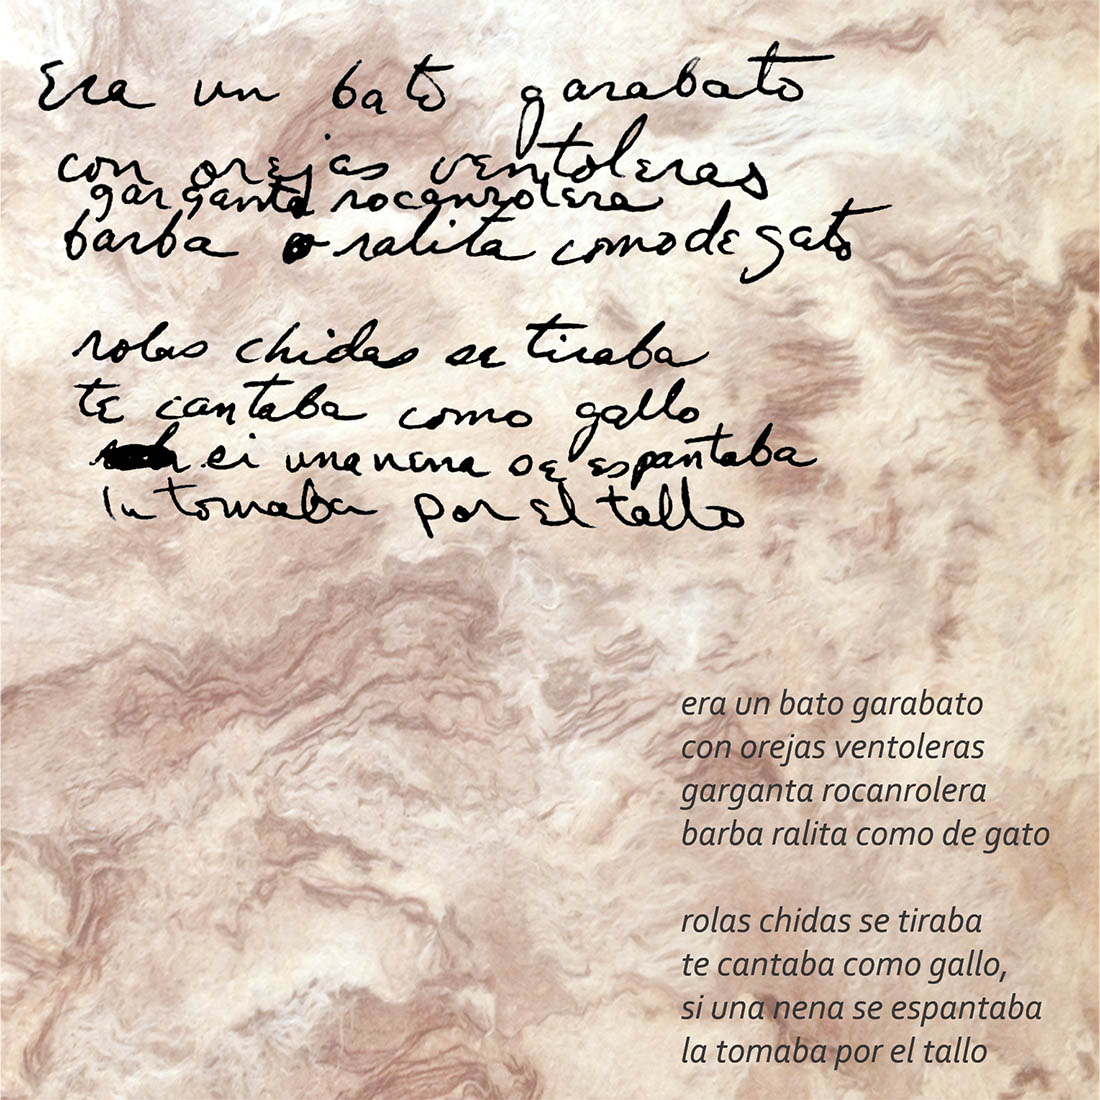 Era un bato garabato
con orejas ventoleras
garganta rocanrolera
barba ralita como de gato
rolas chidas se tiraba
te cantaba como gallo
si una nena se espantaba
la tomaba por el tallo
era un bato garabato
con orejas ventoleras
garganta rocanrolera
barba ralita como de gato
rolas chidas se tiraba
te cantaba como gallo,
si una nena se espantaba
la tomaba por el tallo